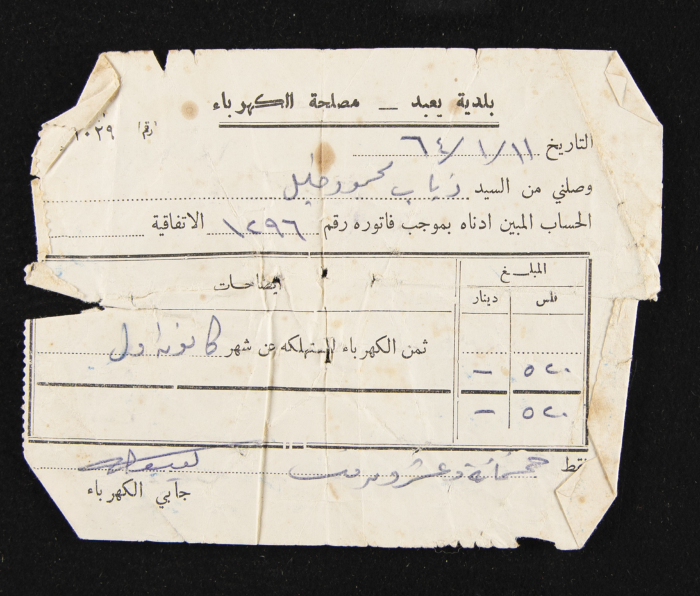 بلدية يعبد — مصلحة الكهرباء
رقم ١٠٢٩
التاريخ ٦٤/١/١١
وصلني من السيد ذياب محمود خليل
الحساب المبين ادناه بموجب فاتوره رقم ١٢٩٦ الاتفاقية
المبلغ
فلس دينار ايضاحات
ثمن الكهرباء المستهلكه عن شهر كانون اول
٥٢٠ —
٥٢٠ —
فقط خمسمائة وعشرون
جابي الكهرباء